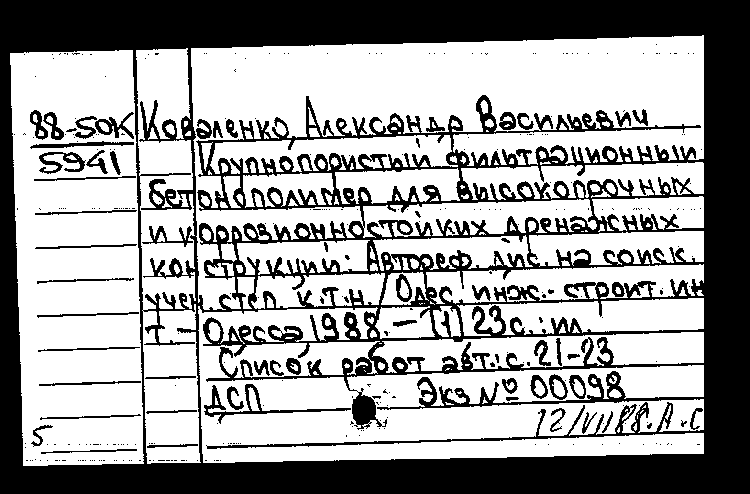 88-50К Коваленко, Александр Васильевич
5941 Крупнопористый фильтрационный
бетонополимер для высокопрочных
и коррозионностойких дренажных
конструкций: Автореф. дис. на соиск.
учен. степ. к.т.н./ Одес. инж.- строит. ин
т. – Одесса 1988. – [1] 23 с. : ил.
Список работ авт.: с. 21-23
ДСП Экз № 00098
5 12/VII 88. А.С